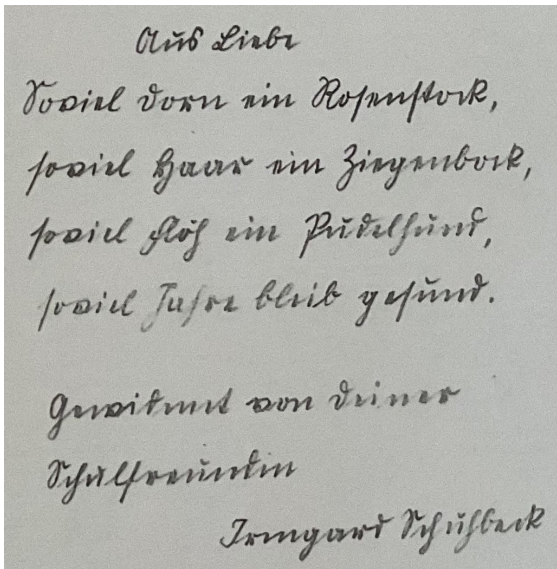 Aus Liebe
Soviel Dorn ein Rosenstock,
soviel Haar ein Ziegenbock,
soviel Flöh ein Pudelhund,
soviel Jahre bleib gesund.
Gewidmet von deiner
Schulfreundin
Irmgard Schuhbeck